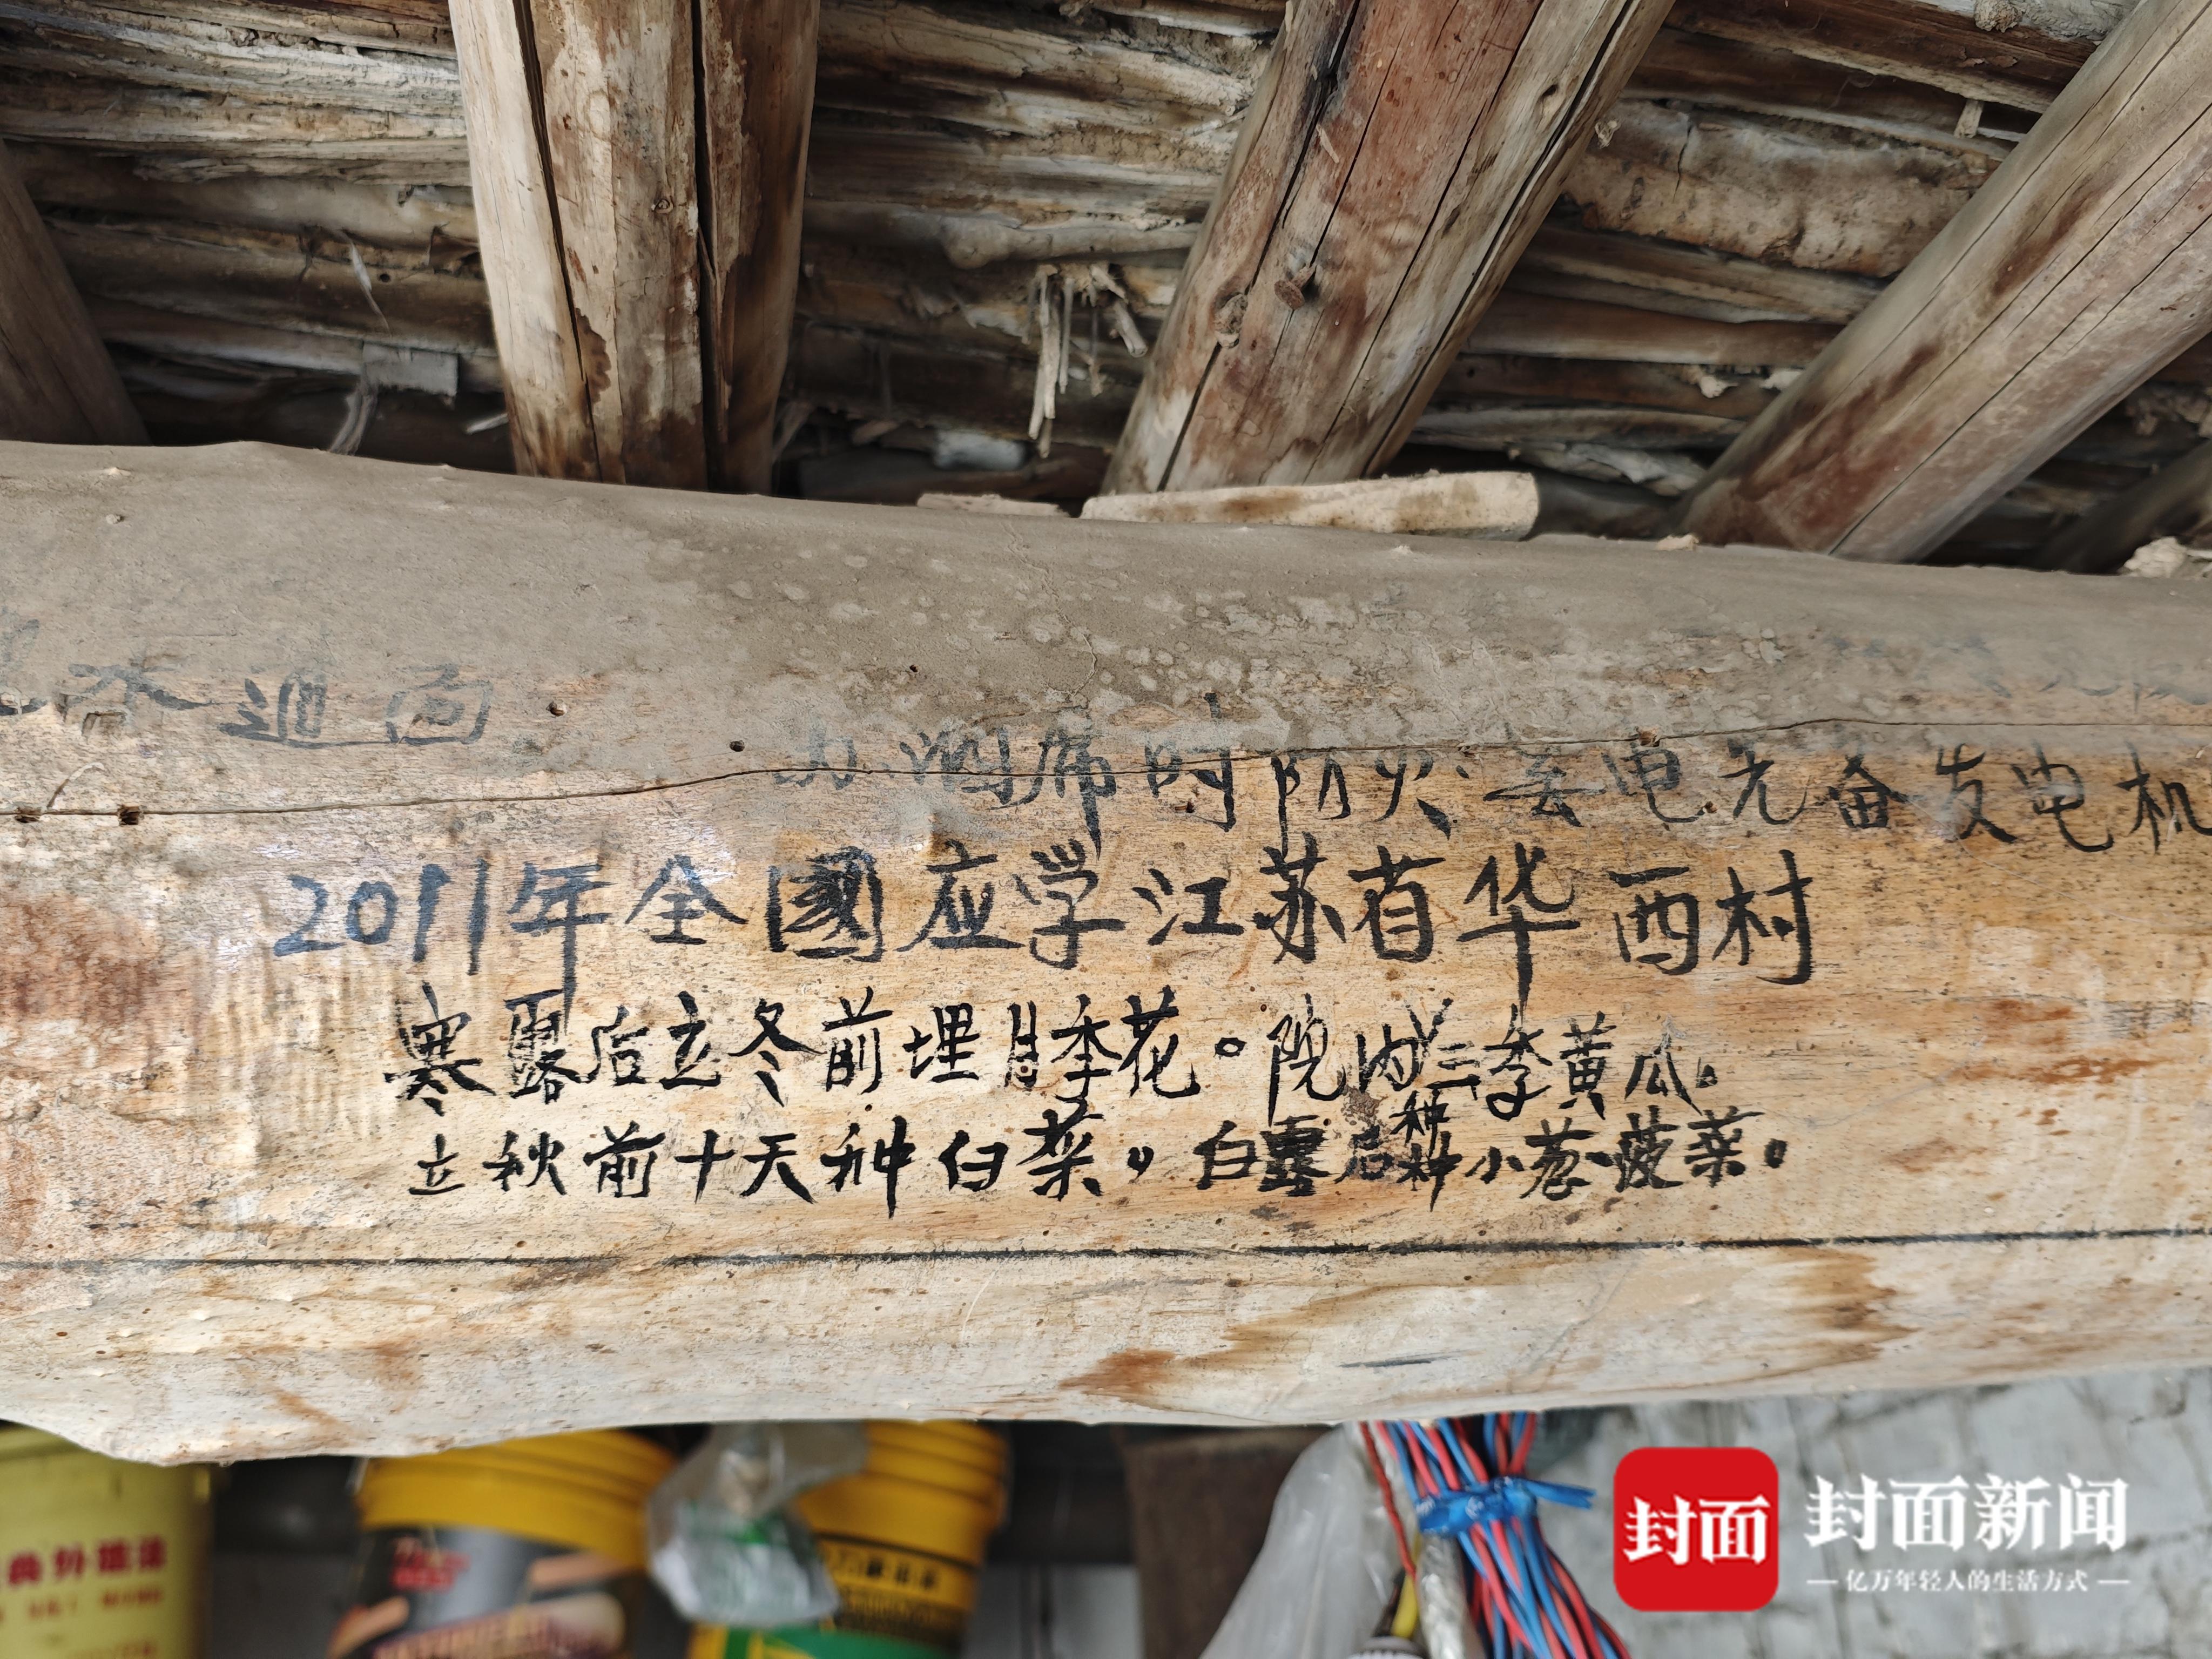 水通面
办酒席时防火、要电先备发电机
2011年全國应学江苏省华西村
寒露后立冬前埋月季花。院内三季黄瓜。
立秋前十天种白菜。白露后种小葱菠菜。
封面
封面新闻
亿万年轻人的生活方式